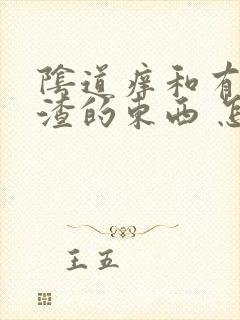 陰道痒和有
渣的东西 怎
王五